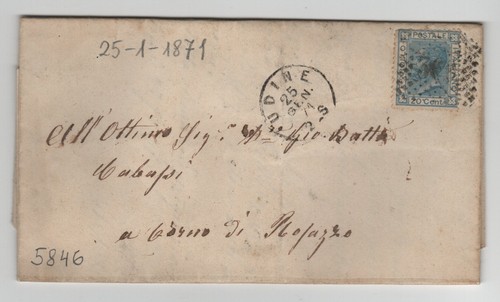 25-1-1871
POSTALE
20 Cent
UDINE
25
GEN.
71
2 S
All'Ottimo Sig.r Gio Batta
Cabassi
a Corno di Rosazzo
5846